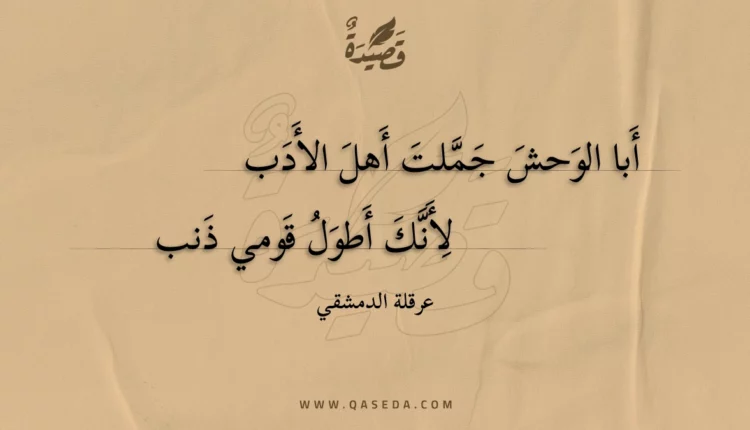 قَصِيدَةٌ
أَبا الوَحشَ جَمَّلتَ أَهلَ الأَدَب
لِأَنَّكَ أَطوَلُ قَومي ذَنب
عرقلة الدمشقي
WWW.QASEDA.COM